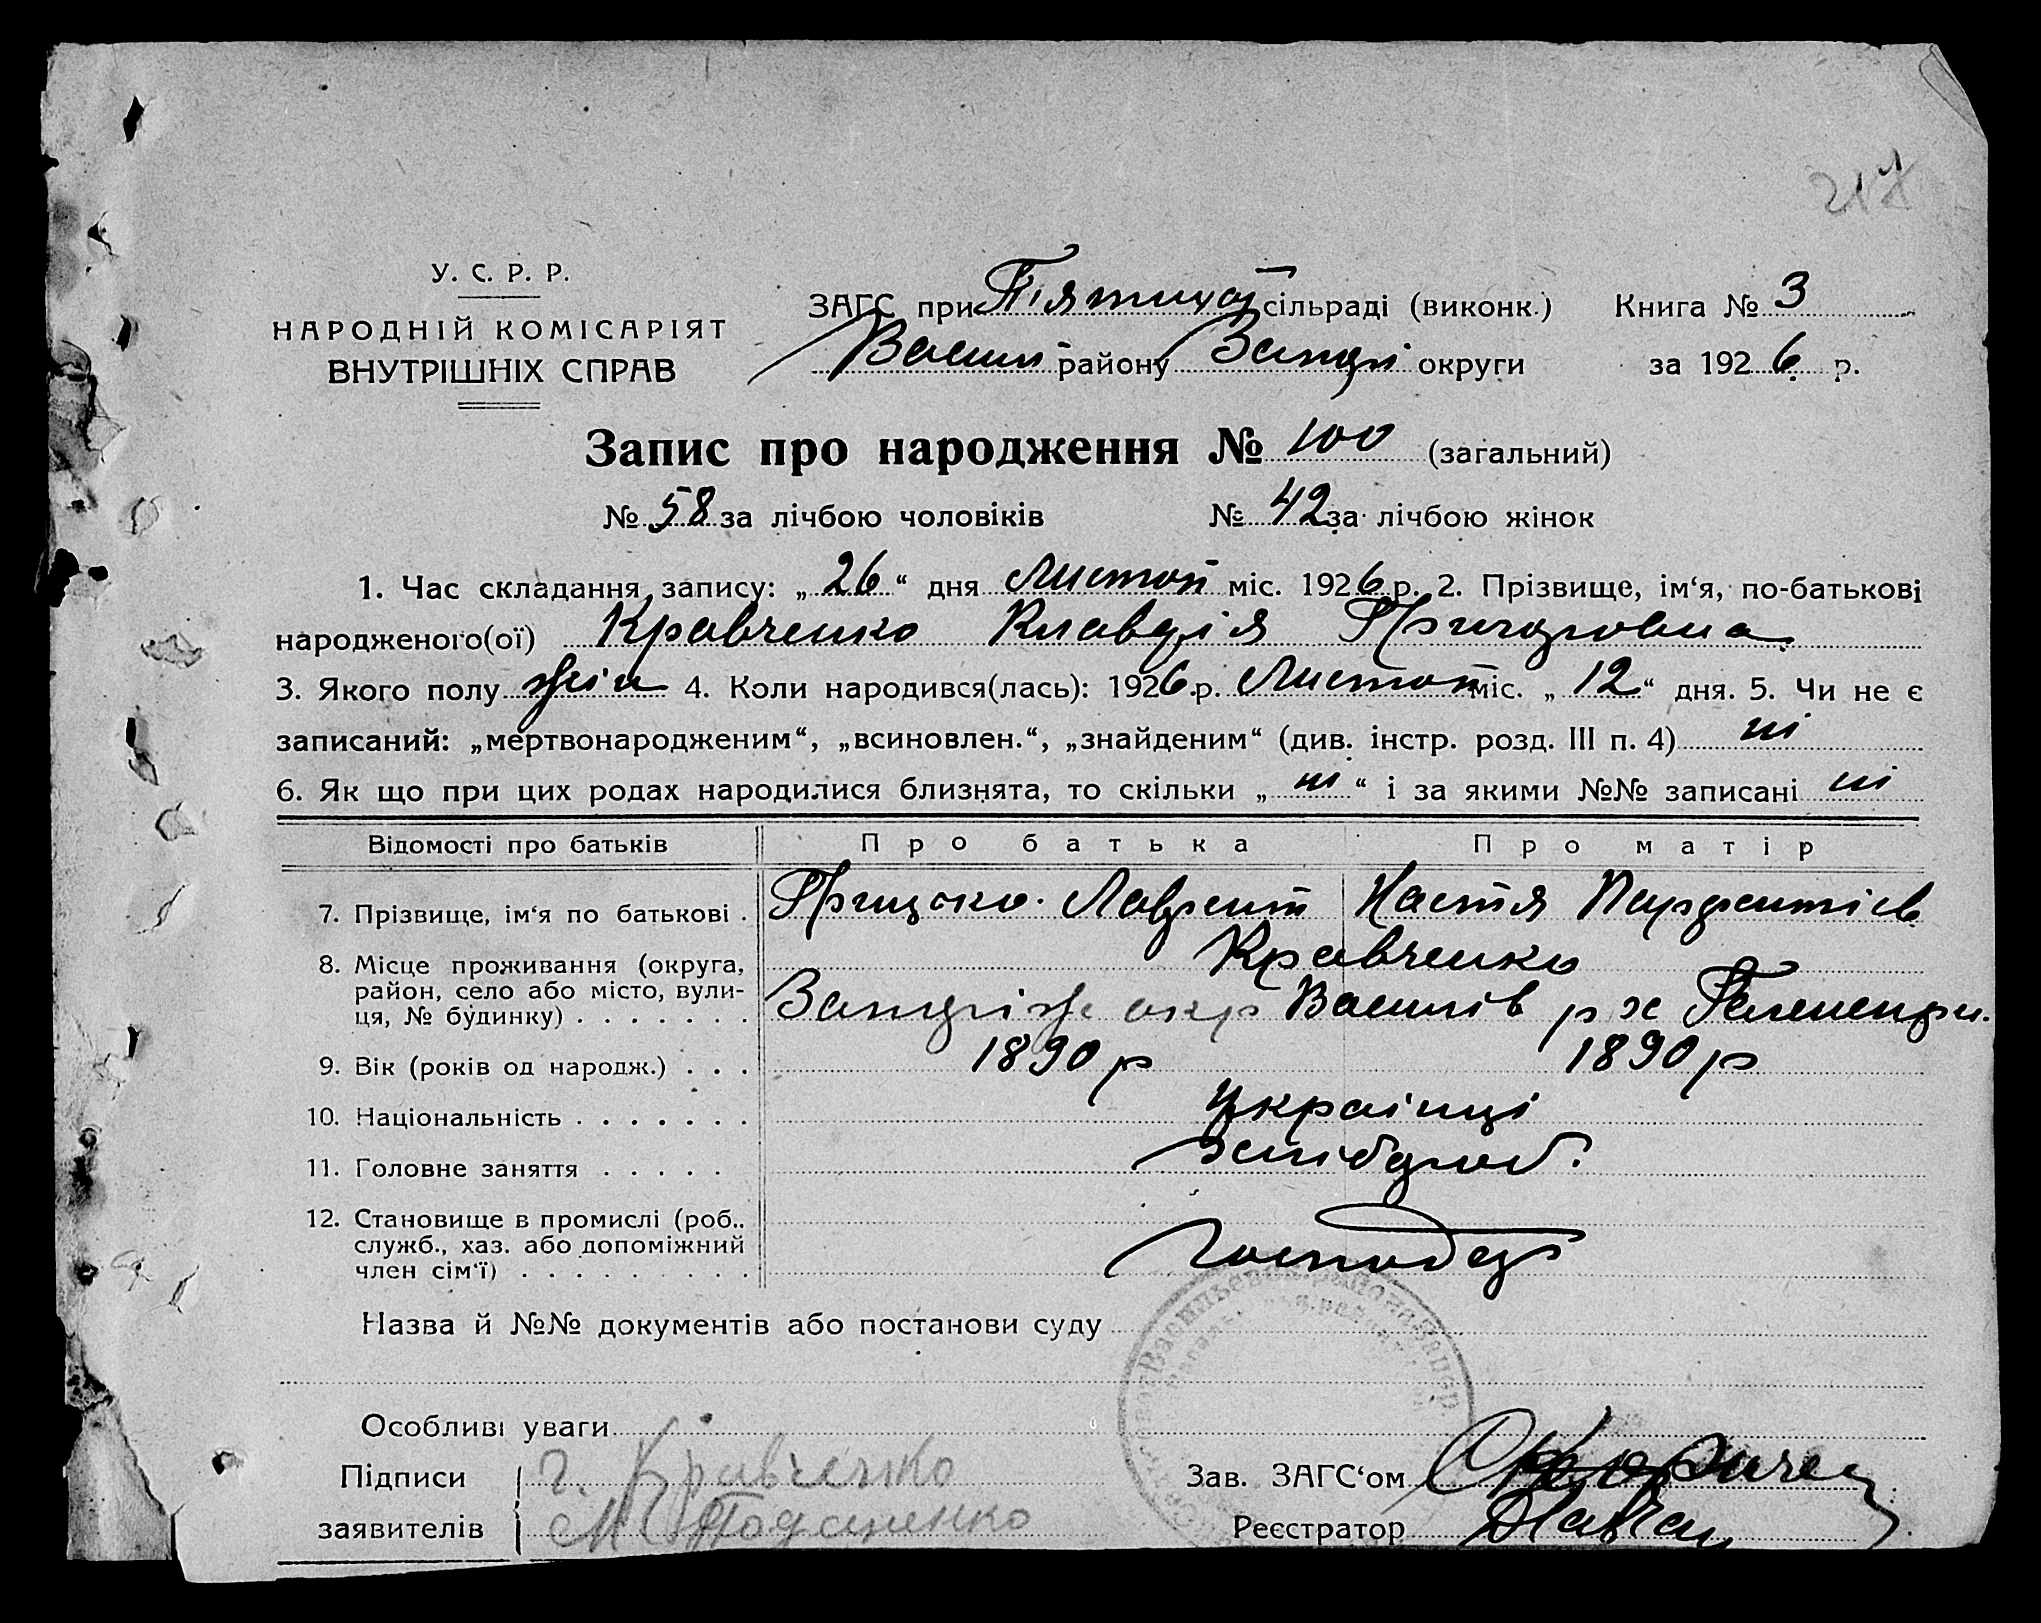 217
У. С. Р. Р.
НАРОДНІЙ КОМІСАРІЯТ
ВНУТРІШНІХ СПРАВ
ЗАГС при П'ятихат сільраді (виконк.) Книга № 3
Васил району Запор округи за 1926 р.
Запис про народження № 100 (загальний)
№ 58 за лічбою чоловіків № 42 за лічбою жінок
1. Час складання запису: „26“ дня Листоп міс. 1926 р. 2. Прізвище, ім‘я, по-батькові
народженого(ої) Кравченко Клавдія Грицьковна
3. Якого полу жін 4. Коли народився(лась): 1926 р. Листоп міс. „12“ дня. 5. Чи не є
записаний: „мертвонародженим“, „всиновлен.“, „знайденим“ (див. інстр. розд. III п. 4) ні
6. Як що при цих родах народилися близнята, то скільки „ні“ і за якими №№ записані ні
Відомості про батьків Про батька Про матір
7. Прізвище, ім‘я по батькові . Грицько Лаврент Настя Парфентієв
Кравченко
8. Місце проживання (округа,
район, село або місто, вули-
ця, № будинку) . . . . . . . Запоріж окр Василів р х
9. Вік (років од народж.) . . . 1890 р 1890 р
10. Національність . . . . . . . Українці
11. Головне заняття . . . . . Хлібороб.
12. Становище в промислі (роб..
служб., хаз. або допоміжний
член сім‘ї) . . . . . . . . . Господар
Назва й №№ документів або постанови суду
Особливі уваги
Підписи Г. Кравченко Зав. ЗАГС‘ом
заявителів М Реєстратор